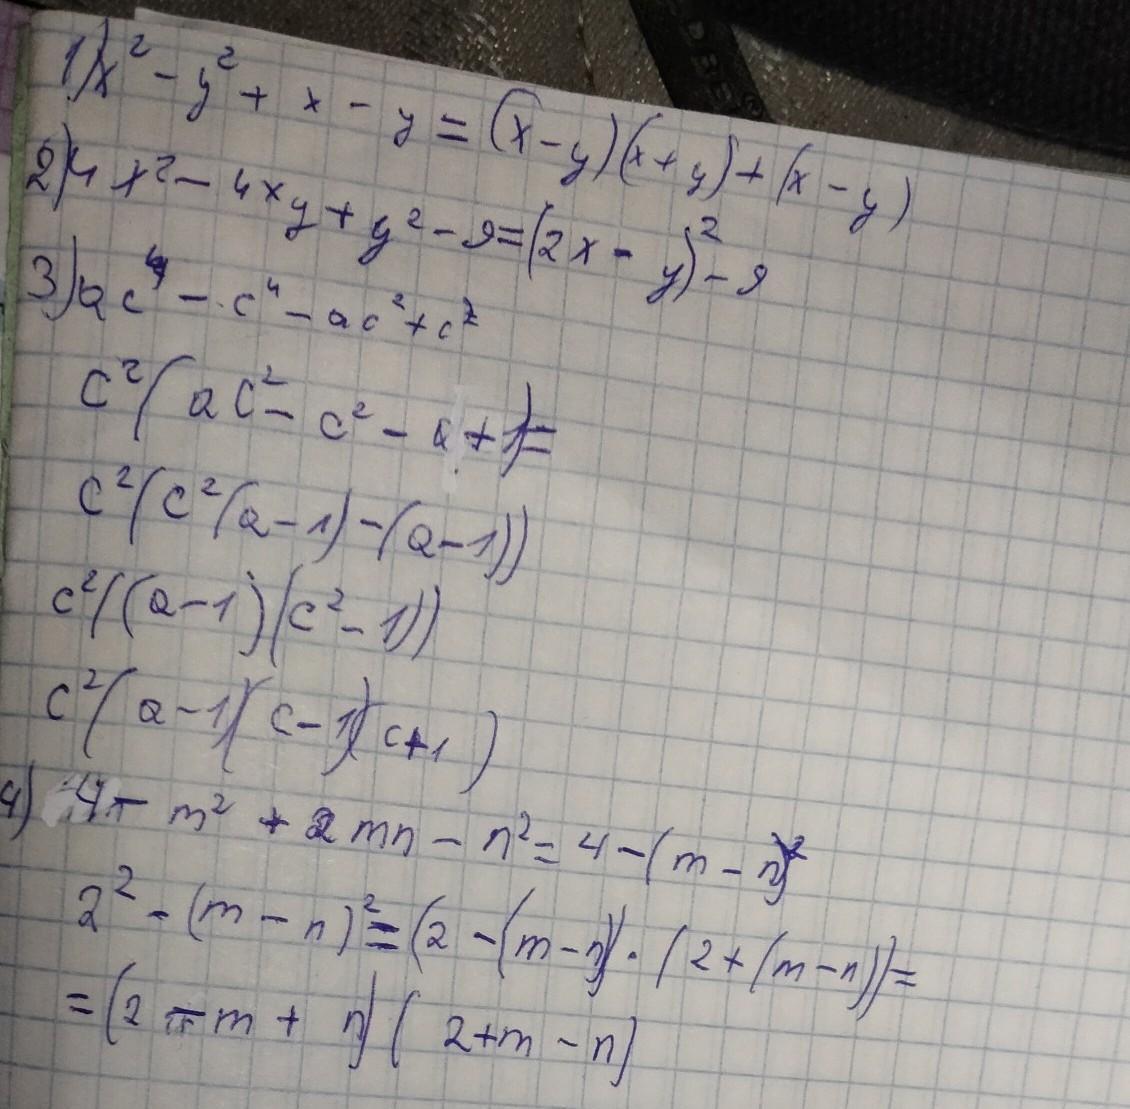 1) x² - y² + x - y = (x-y)(x+y)+(x-y)
2) 4x² - 4xy + y² - 9 = (2x - y)² - 9
3) ac⁴ - c⁴ - ac² + c²
c²(ac² - c² - a + 1) =
c²(c²(a-1) - (a-1))
c²((a-1)(c²-1))
c²(a-1)(c-1)(c+1)
4) 4 - m² + 2mn - n² = 4 - (m - n)²
2² - (m - n)² = (2 - (m-n)) · (2 + (m-n)) =
= (2 - m + n) (2+m - n)